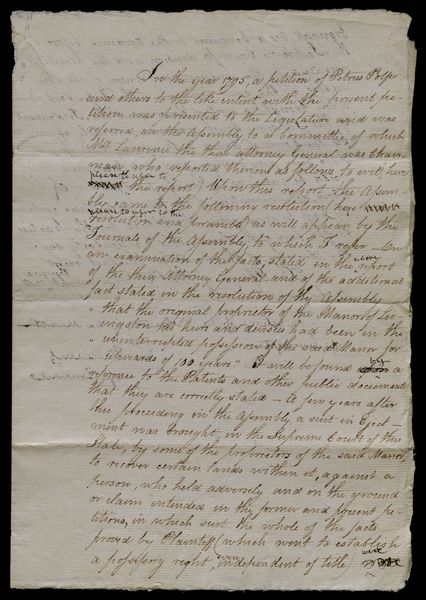 In the year 1795, a petition of Petrus Pulfer
and others to the like intent with the present pe-
tition was presented to the Legislature and was
referred, in the Assembly to a Committee of which
Mr. Lawrence the then attorney General was Chair
man, who reported thereon as follows, to wit (here
please to refer to
the report) Upon this report the Assem
bly came to the following resolution (here
please to refer to the
resolution and preamble) as will appear by the
Journals of the Assembly to which I refer — On
an examination of the facts stated in the above report
of the then Attorney General and of the additional
fact stated in the resolution of the Assembly
" that the original proprietor of the Manor of Liv-
" ingston his heirs and devisees had been in the
" uninterrupted possession of the said Manor for
" upwards of 100 years" It will be found by a
reference to the Patents and other public documents
that they are correctly stated — A few years after
this proceeding in the Assembly a suit in Eject-
ment was brought, in the Supreme Court of this
State, by some of the proprietors of the said Manor,
to recover certain lands within it, against a
person, who held adversely and on the ground
or claim intended in the former and present pe-
titions, in which suit the whole of the facts
proved by Plaintiff (which went to establish
a possessory right, even independent of title) were